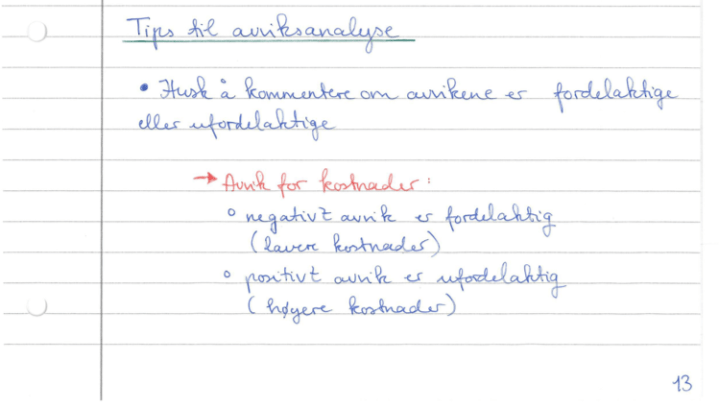 Tips til avviksanalyse
• Husk å kommentere om avvikene er fordelaktige
eller ufordelaktige
→ Avvik for kostnader:
° negativt avvik er fordelaktig
(lavere kostnader)
° positivt avvik er ufordelaktig
(høyere kostnader)
13